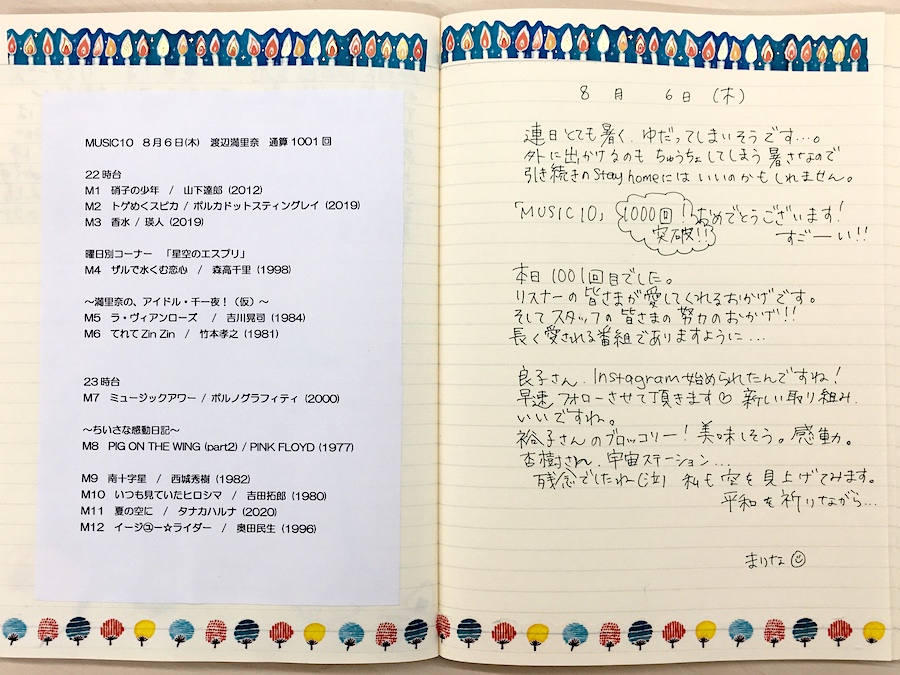 MUSIC10　8月6日(木)　渡辺満里奈　通算1001回
22時台
M1　硝子の少年　/　山下達郎 (2012)
M2　トゲめくスピカ / ポルカドットスティングレイ (2019)
M3　香水 / 瑛人 (2019)
曜日別コーナー　「星空のエスプリ」
M4　ザルで水くむ恋心　/　森高千里 (1998)
～満里奈の、アイドル・千一夜！(仮) ～
M5　ラ・ヴィアンローズ　/　吉川晃司 (1984)
M6　てれてZin Zin　/　竹本孝之 (1981)
23時台
M7　ミュージックアワー / ポルノグラフィティ (2000)
～ちいさな感動日記～
M8　PIG ON THE WING (part2) / PINK FLOYD (1977)
M9　南十字星　/　西城秀樹 (1982)
M10　いつも見ていたヒロシマ　/　吉田拓郎 (1980)
M11　夏の空に　/　タナカハルナ (2020)
M12　イージ㋴ー☆ライダー　/　奥田民生 (1996)
8月　6日 (木)
連日とても暑く、ゆだってしまいそうです…。
外に出かけるのも ちゅうちょしてしまう 暑さなので
引き続きの Stay home にはいいのかもしれません。
「MUSIC10」1000回！おめでとうございます！
突破!! すごーい!!
本日 1001回目でした。
リスナーの皆さまが愛してくれるおかげです。
そしてスタッフの皆さまの努力のおかげ!!
長く愛される番組でありますように…
良子さん、Instagram始められたんですね！
早速フォローさせて頂きます♡ 新しい取り組み、
いいですね。
裕子さんのブロッコリー！美味しそう。感動。
杏樹さん、宇宙ステーション…
残念でしたね(泣) 私も空を見上げてみます。
平和を祈りながら…
まりな☺